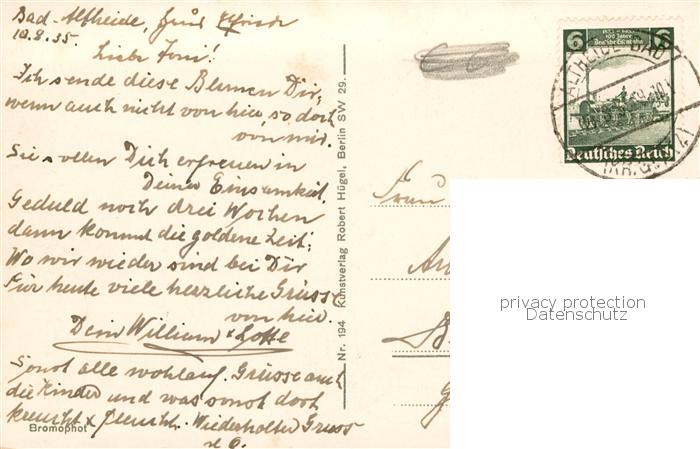 Bad-Altheide, Haus Elfriede
10.8.35.
Liebe Toni!
Ich sende diese Blumen Dir,
wenn auch nicht von hier, so doch
von mir.
Sie sollen Dich erfreuen in
Deiner Einsamkeit.
Geduld noch drei Wochen
dann kommt die goldene Zeit;
Wo wir wieder sind bei Dir
Für heute viele herzliche Grüsse
von hier.
Dein William & Lotte
Sonst alle wohlauf. Grüsse auch
die Kinder und was sonst doch
kreucht & fleucht. Wiederholten Gruss
d O.
Bromophot
Nr. 194 Kunstverlag Robert Hügel, Berlin SW 29.
6 6
1835-1935
100 Jahre
Deutsche Eisenbahn
Deutsches Reich
ALTHEIDE BAD
(KR. GLATZ)
Frau
privacy protection
Datenschutz